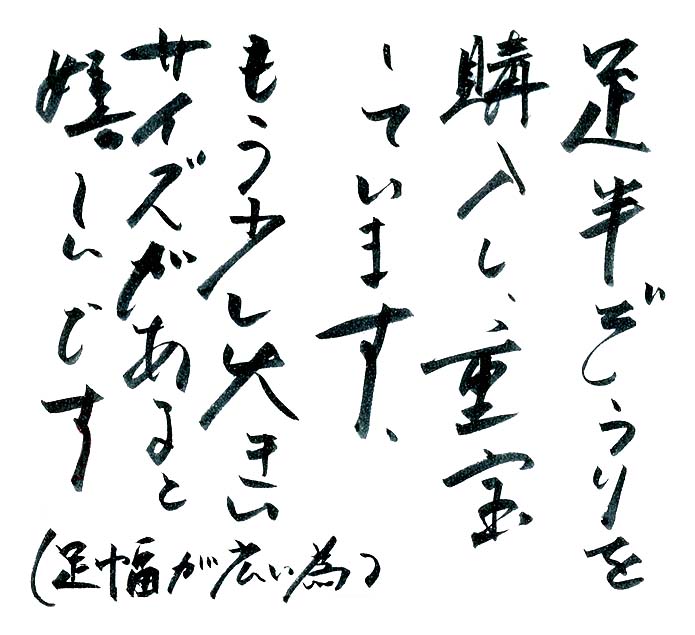 足半ぞうりを
購入し、重宝
しています、
もう少し大きい
サイズがあると
嬉しいです
(足幅が広い為)